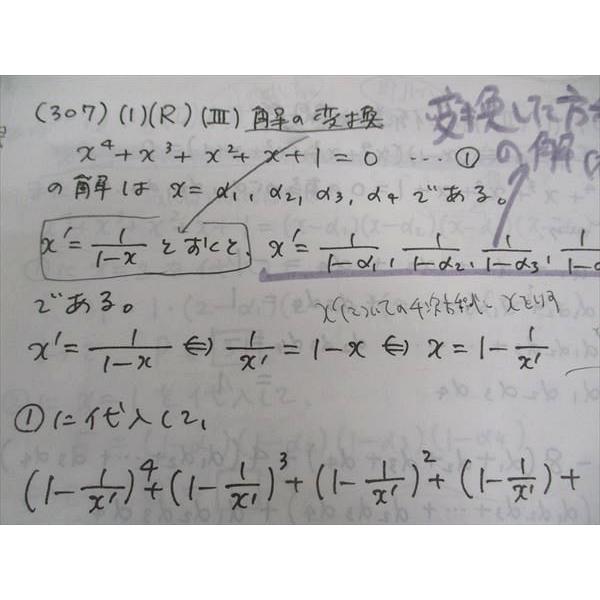 (307) (1)(R) (III) 解の変換
変換した方
の解
x⁴+x³+x²+x+1=0 … ①
の解は x=α₁, α₂, α₃, α₄ である。
x'=1/(1-x) とおくと、 x'=1/(1-α₁), 1/(1-α₂), 1/(1-α₃), 1/(1-α
である。
x'=1/(1-x) ⇔ 1/x'=1-x ⇔ x=1-1/x'
①に代入して,
(1-1/x')⁴+(1-1/x')³+(1-1/x')²+(1-1/x')+